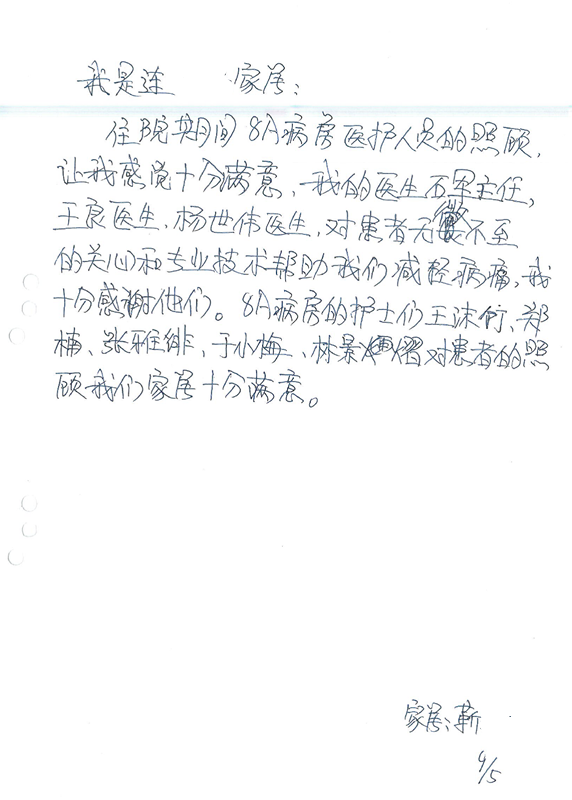 我是连 家属：
住院期间8A病房医护人员的照顾，
让我感觉十分满意、我的医生石军主任，
王良医生，杨世伟医生，对患者无微不至
的关心和专业技术帮助我们减轻病痛，我
十分感谢他们。8A病房的护士们王沫衍、郑
楠、张雅绯、于小梅、林景熠对患者的照
顾我们家属十分满意。
家属：靳
4/5